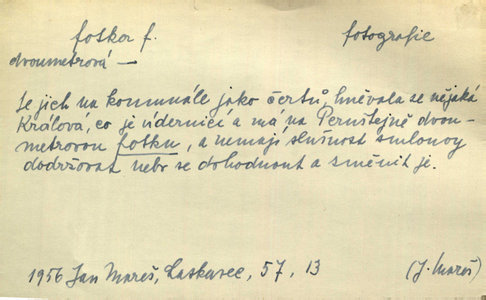 fotka f. fotografie
dvoumetrová —
Je jich na komunále jako čertů, hněvala se nějaká
Králová, co je údernicí a má na Pernštejně dvou-
metrovou fotku, a nemají slušnost smlouvy
dodržovat nebo se dohodnout a směnit je.
1956 Jan Mareš, Laskavec, 57, 13 (J. Mareš)